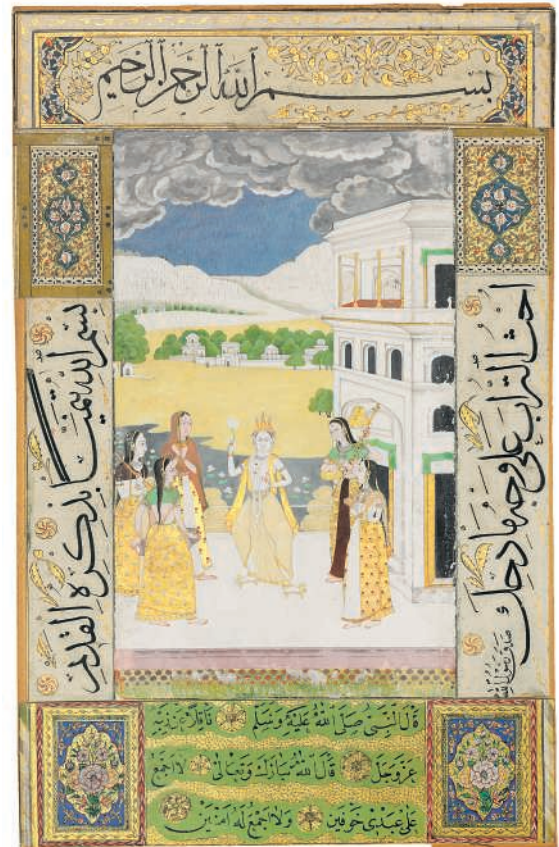 بسم الله الرحمن الرحيم
احث التراب على وجه مادحك
صدق رسول الله
بسم الله تيمنا بذكره القديم
قال النبي صلى الله عليه وسلم ناقلا عن ربه
عز وجل قال الله تبارك وتعالى لا اجمع
على عبدي خوفين ولا اجمع له امنين